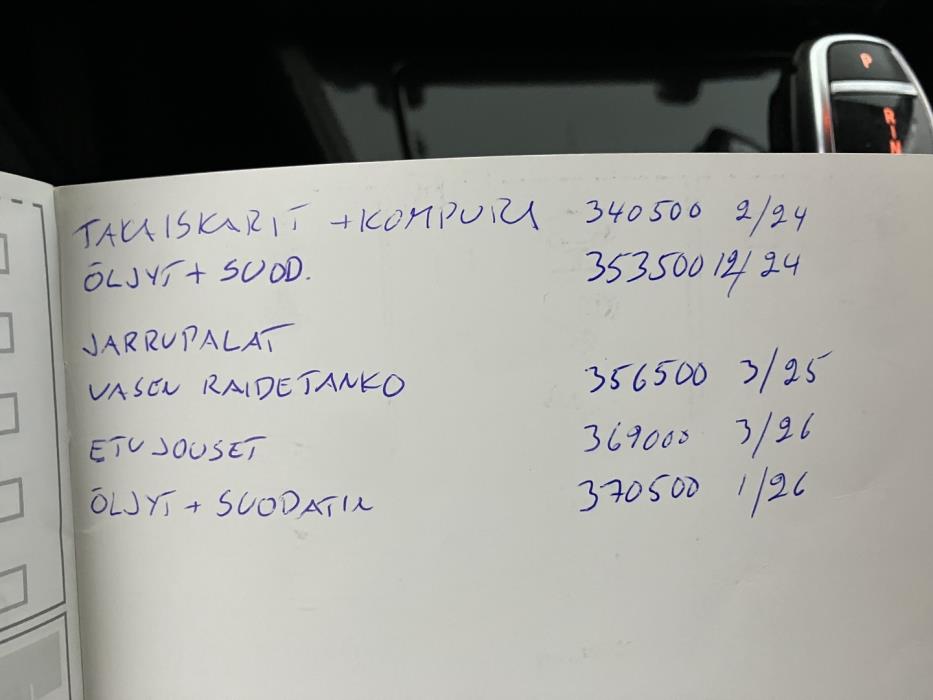 TAKAISKARIT + KOMPURA 340500 2/24
ÖLJYT + SUOD. 353500 12/24
JARRUPALAT
VASEN RAIDETANKO 356500 3/25
ETUJOUSET 369000 3/26
ÖLJYT + SUODATIN 370500 1/26
P
R
N